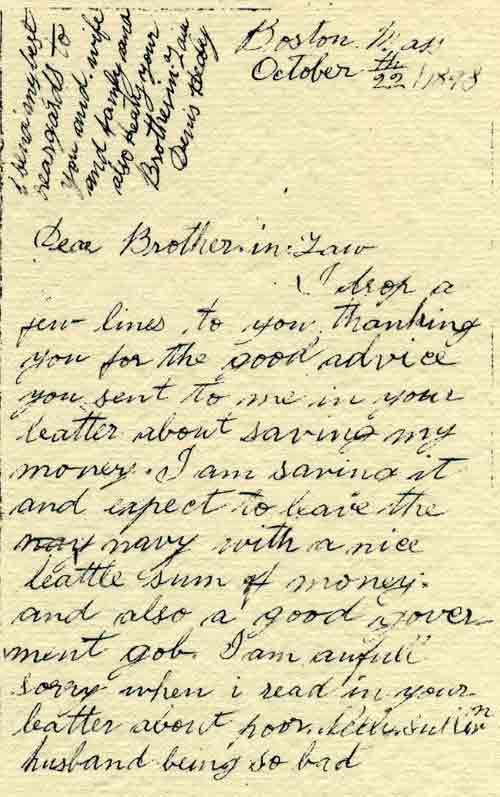 Boston Mas
October 22th 1898
Dear Brother-in-Law
I drop a
few lines to you thanking
you for the good advice
you sent to me in your
leatter about saving my
money. I am saving it
and expect to leave the
nay navy with a nice
leattle sum of money.
and also a good gover
ment gob. I am aufull
sorry when i read in your
leatter about poor
husband being so bad
I send my best
reargards to
you and wife
and family and
also
Brother-in-Law
Denis